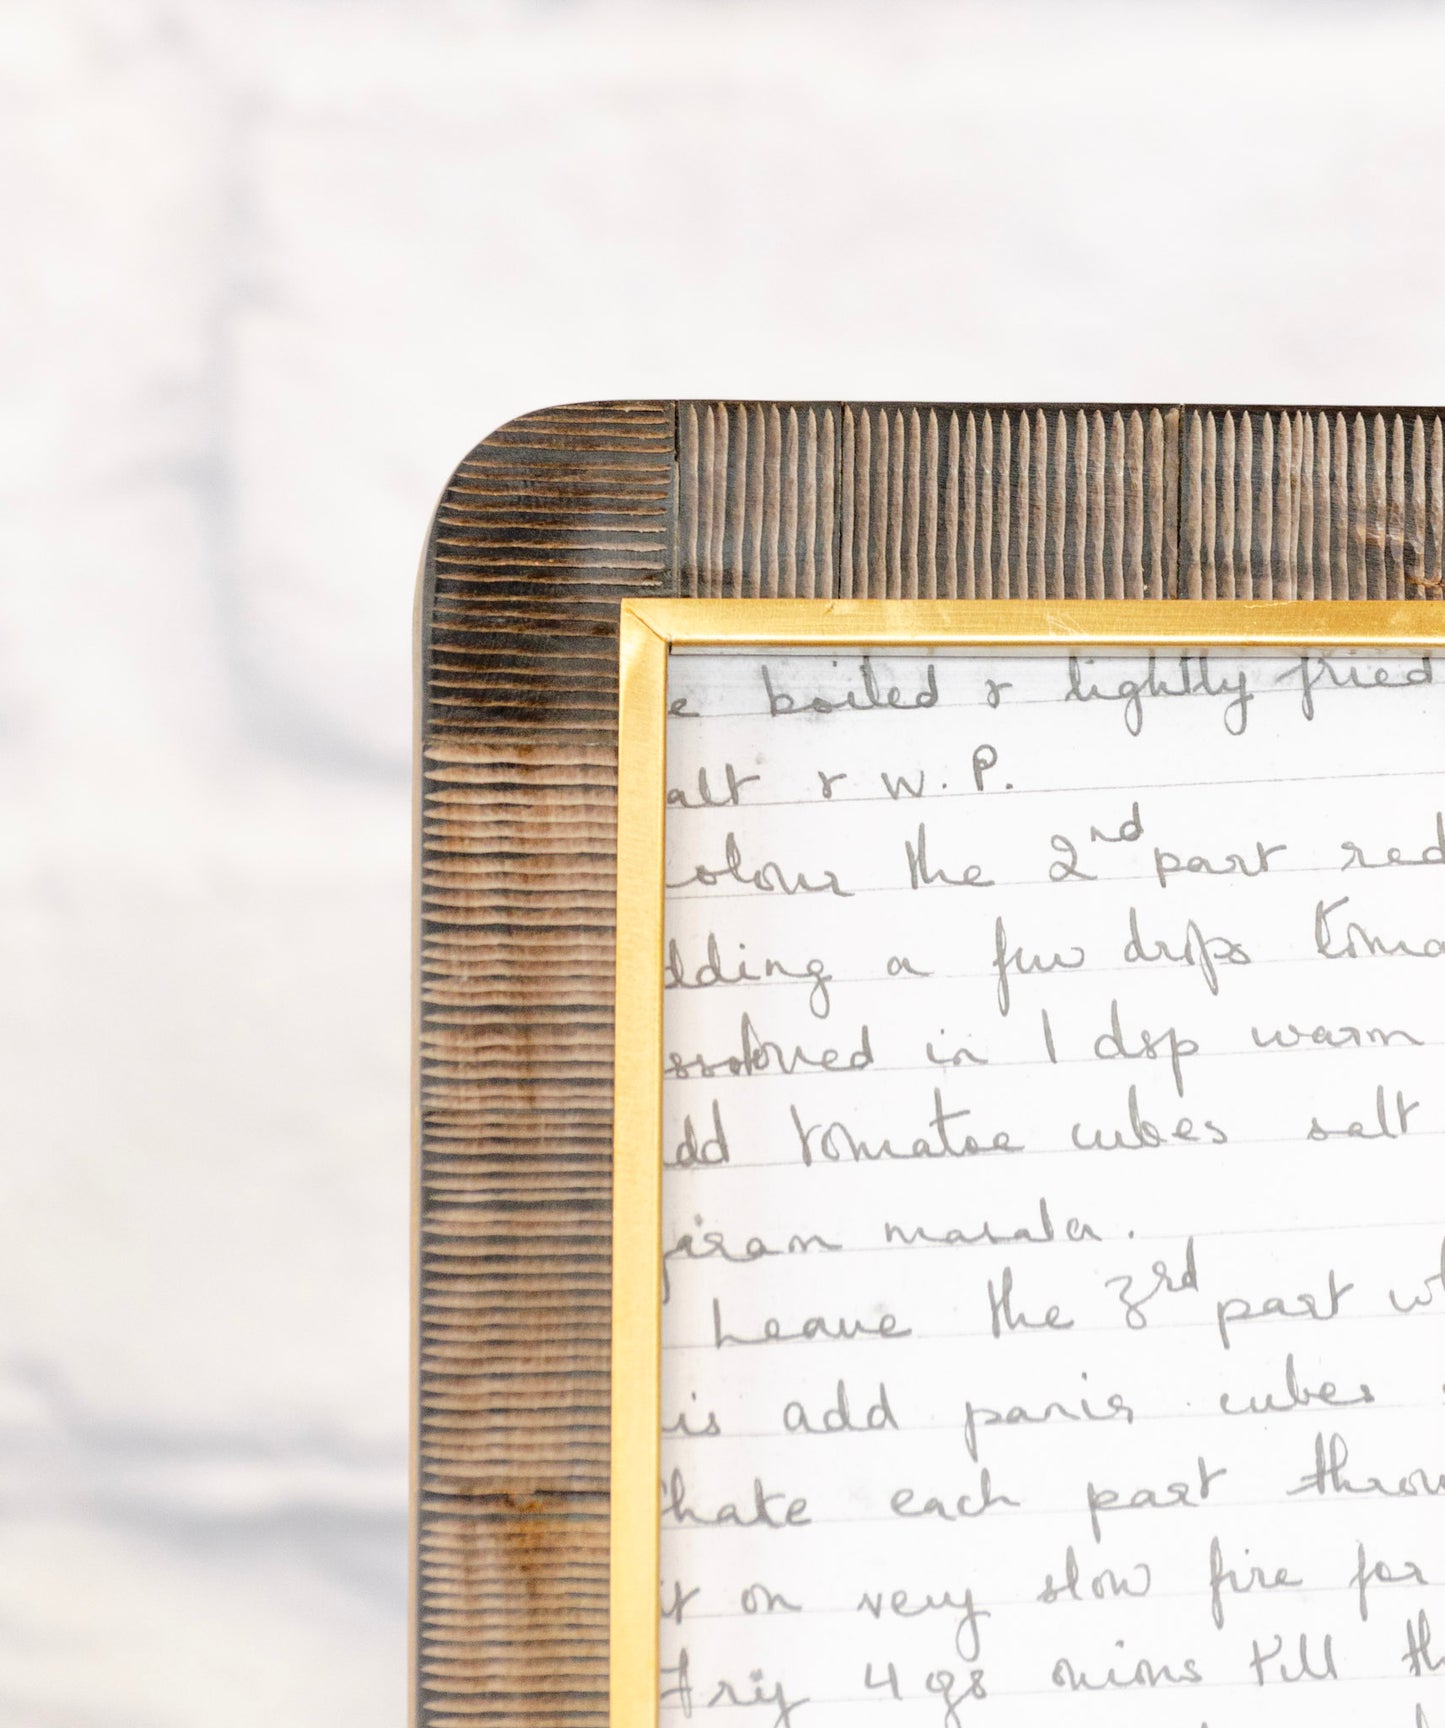 e boiled & lightly fried
alt & W.P.
olour the 2nd part red
dding a few drops toma
ssolved in 1 dsp warm
dd tomatoe cubes salt
jiran masala.
Leave the 3rd part wh
is add panir cubes
hake each part throu
it on very slow fire for
Fry 4 gs mins till th